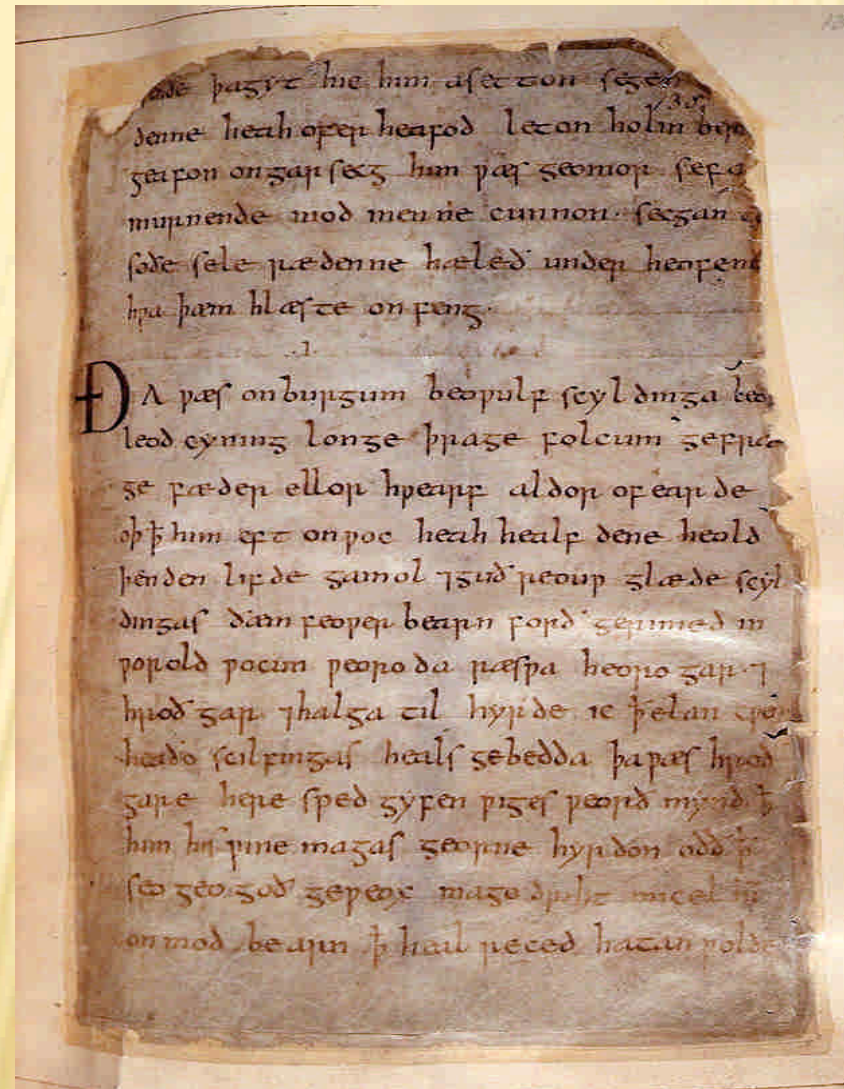 þagyt hie him asetton segen
denne heah ofer heafod leton holm ber
geafon ongarsecg him ƿæs geomor sefa
murnende mod men ne cunnon secgan
soðe sele rædenne hæleð under heofenu
hƿa þæm hlæste onfeng.
.I.
ÐA ƿæs onburgum beoƿulf scyldinga leof
leod cyning longe þrage folcum gefræ
ge fæder ellor hƿearf aldor ofearde
oþ ꝥ him eft onƿoc heah healf dene heold
þenden lifde gamol ⁊guð reouƿ glæde scyl
dingas ðæm feoƿer bearn forð gerimed in
ƿorold ƿocun ƿeoro da ræsƿa heoro gar ⁊
hroð gar ⁊halga til hyrde ic ꝥ elan cƿen
heaðo scilfingas heals gebedda þa ƿæs hroð
gare here sped gyfen ƿiges ƿeorð mynd ꝥ
him his ƿine magas georne hyrdon oðð ꝥ
seo geo goð geƿeox mago driht micel him
on mod bearn ꝥ heal reced hatan ƿolde